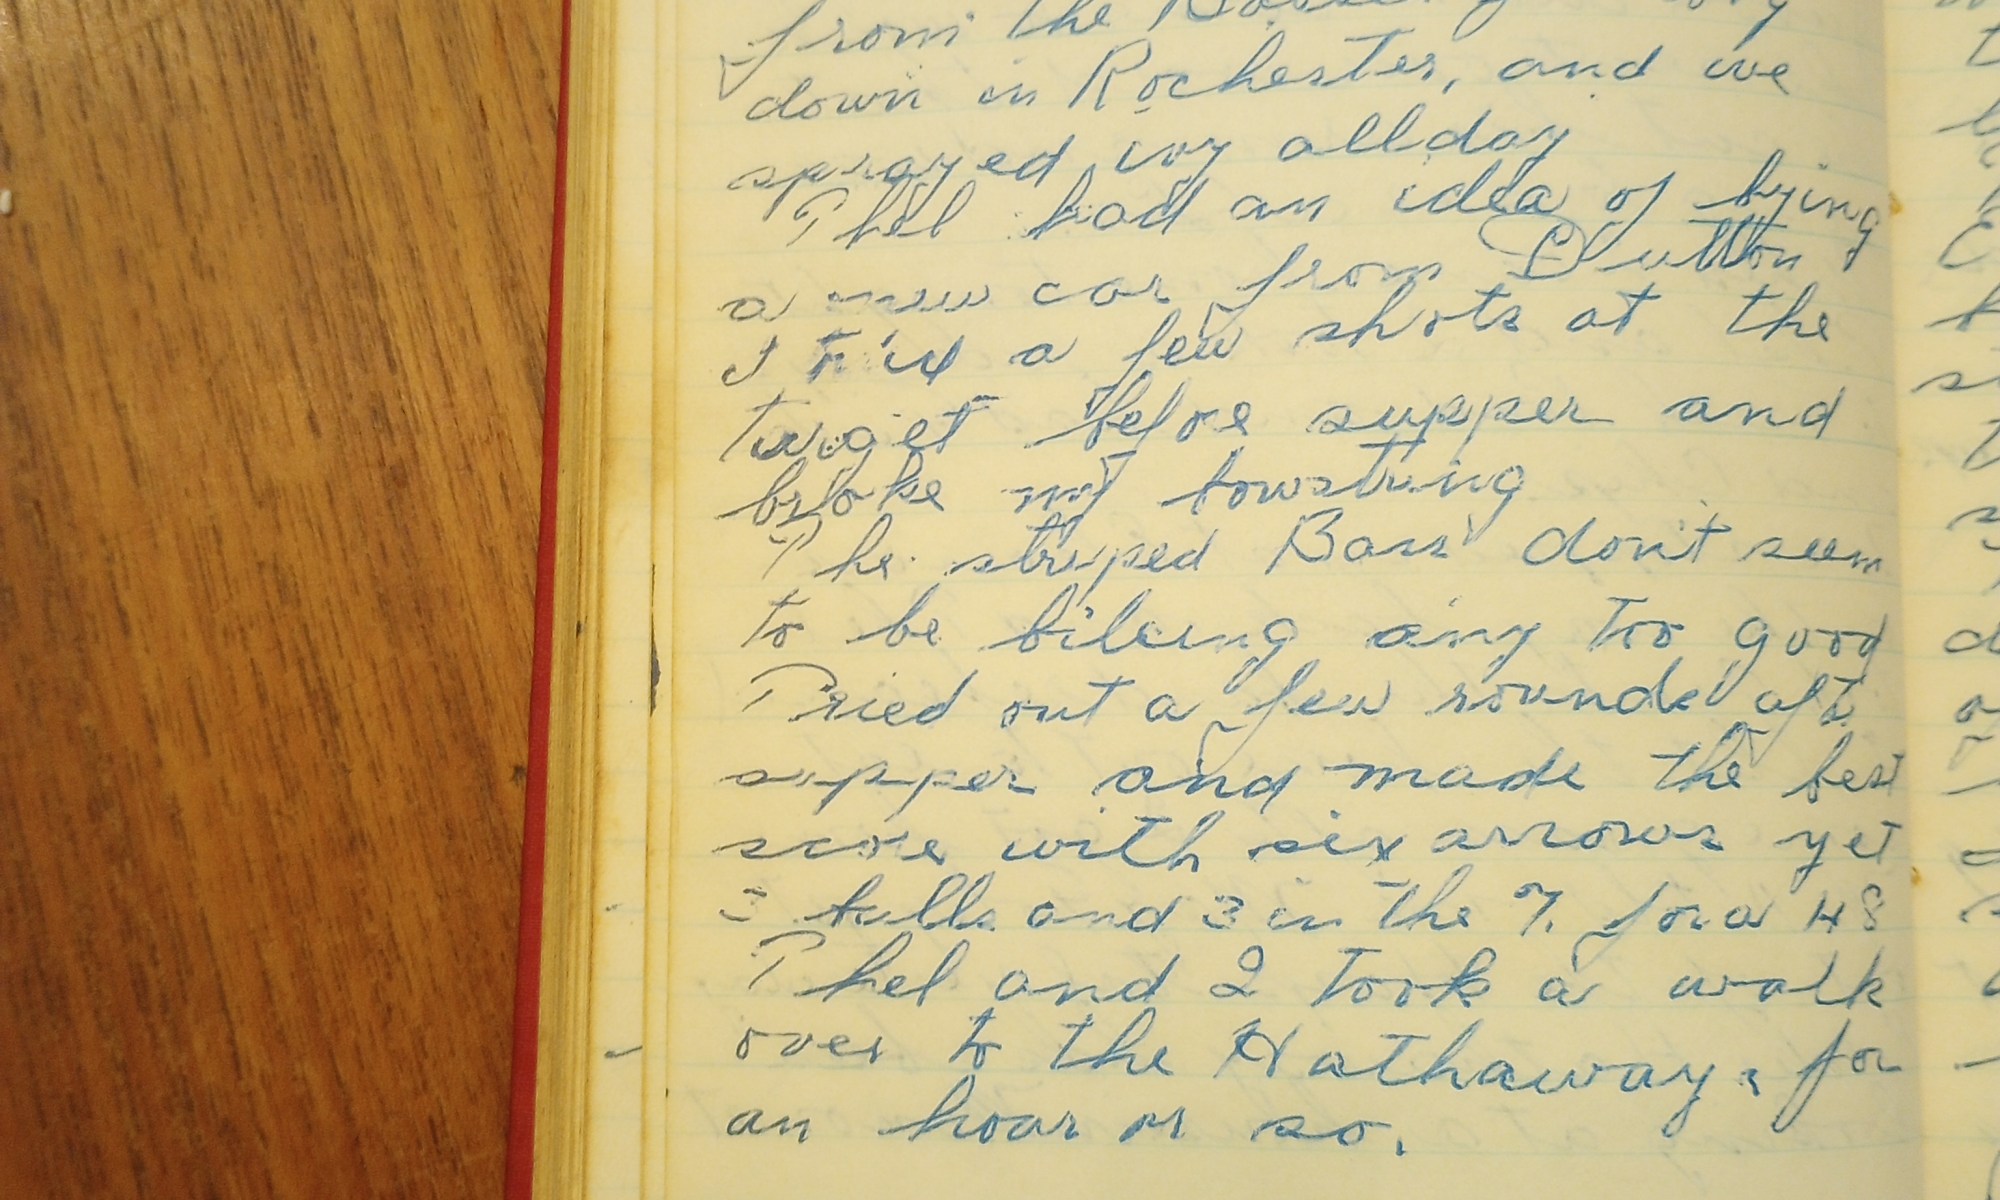 from the
down in Rochester, and we
sprayed ivy all day
Thel had an idea of bying
a new car from Dutton
I a few shots at the
target before supper and
broke my bowstring
The striped Bass don't seem
to be biteing any too good
Tried out a few rounds aft
supper and made the best
score with six arrows yet
3 bulls and 3 in the 7. for a 48
Thel and I took a walk
over to the Hathaways for
an hoar or so.